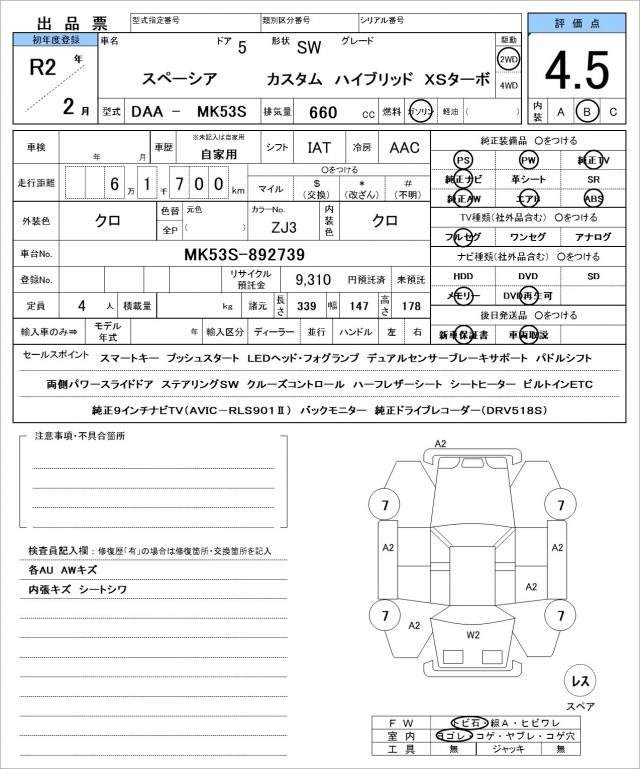 出品票 型式指定番号 類別区分番号 シリアル番号 評価点
初年度登録 車名 ドア 5 形状 SW グレード 駆動
R2 年 スペーシア カスタム ハイブリッド XSターボ 2WD 4.5
4WD
2 月 型式 DAA － MK53S 排気量 660 cc 燃料 ガソリン 軽油 ( ) 内装 A B C
車検 年 月 車歴 ※未記入は自家用 自家用 シフト IAT 冷房 AAC 純正装備品 〇をつける
PS PW 純正TV
走行距離 6 万 1 千 7 0 0 km マイル 〇をつける $ (交換) * (改ざん) # (不明) 純正ナビ 革シート SR
純正AW エアB ABS
外装色 クロ 色替 元色 カラーNo. 内装色 クロ TV種類(社外品含む) 〇をつける
全P ( ) ZJ3 フルセグ ワンセグ アナログ
車台No. MK53S-892739 ナビ種類(社外品含む) 〇をつける
登録No. リサイクル預託金 9,310 円預託済 未預託 HDD DVD SD
定員 4 人 積載量 kg 諸元 長さ 339 幅 147 高さ 178 メモリー DVD再生可
後日発送品 〇をつける
輸入車のみ⇒ モデル年式 年 輸入区分 ディーラー 並行 ハンドル 左 右 新車保証書 車両取説
セールスポイント スマートキー プッシュスタート LEDヘッド・フォグランプ デュアルセンサーブレーキサポート パドルシフト
両側パワースライドドア ステアリングSW クルーズコントロール ハーフレザーシート シートヒーター ビルトインETC
純正9インチナビTV(AVIC-RLS901Ⅱ) バックモニター 純正ドライブレコーダー(DRV518S)
注意事項・不具合箇所
A2
7 7
検査員記入欄 : 修復歴「有」の場合は修復箇所・交換箇所を記入
A2 A2
各AU AWキズ
内張キズ シートシワ
A2
7 7
A2
W2
レス
スペア
FW トビ石・線A・ヒビワレ
室内 ヨゴレ・コゲ・ヤブレ・コゲ穴
工具 無 ジャッキ 無